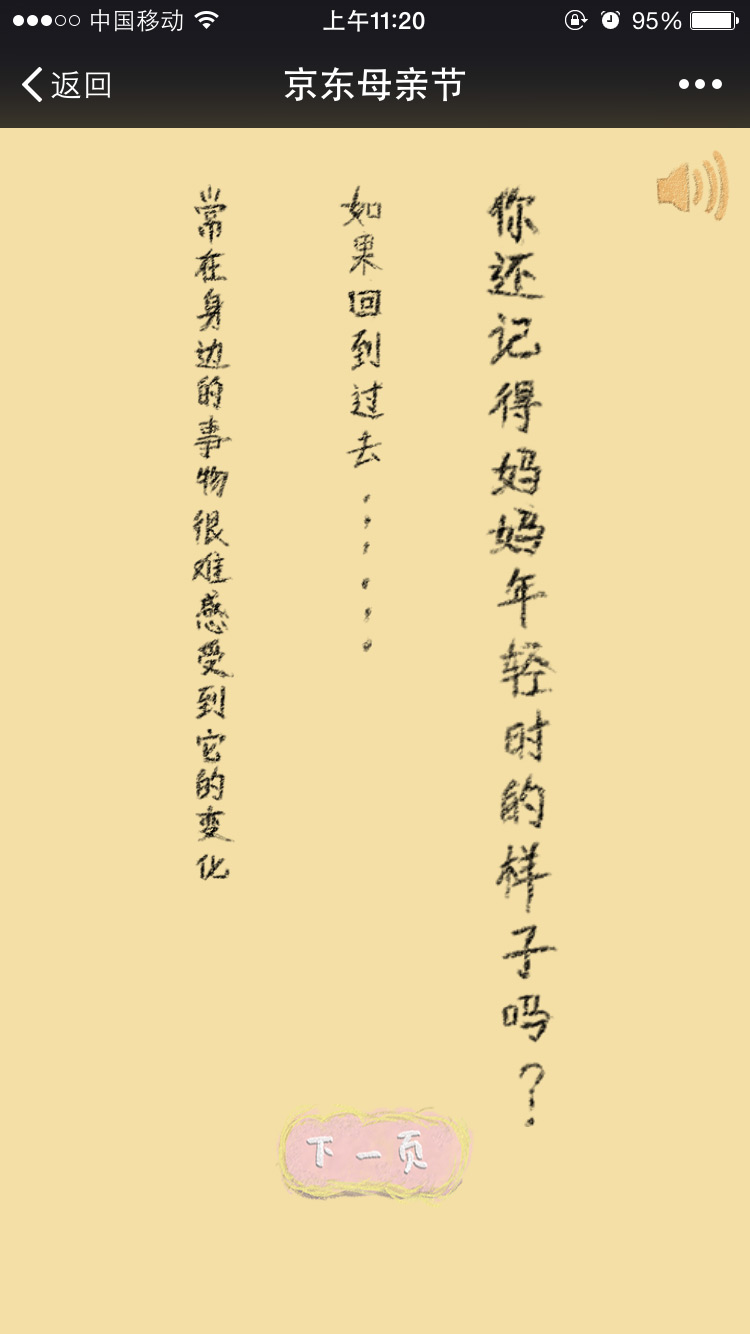 中国移动 上午11:20 95%
返回 京东母亲节
你还记得妈妈年轻时的样子吗？
如果回到过去......
常在身边的事物很难感受到它的变化
下一页